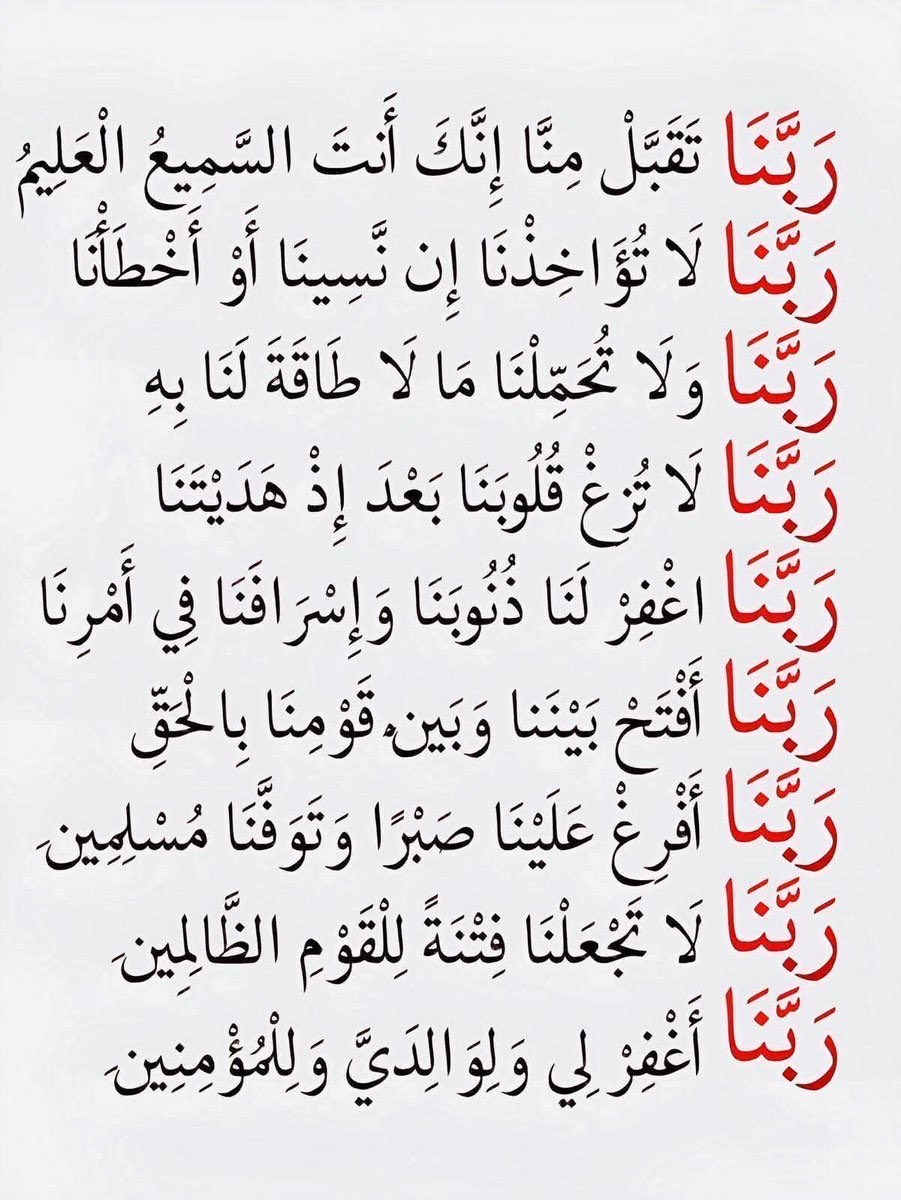 رَبَّنَا تَقَبَّلْ مِنَّا إِنَّكَ أَنتَ السَّمِيعُ الْعَلِيمُ
رَبَّنَا لَا تُؤَاخِذْنَا إِن نَّسِينَا أَوْ أَخْطَأْنَا
رَبَّنَا وَلَا تُحَمِّلْنَا مَا لَا طَاقَةَ لَنَا بِهِ
رَبَّنَا لَا تُزِغْ قُلُوبَنَا بَعْدَ إِذْ هَدَيْتَنَا
رَبَّنَا اغْفِرْ لَنَا ذُنُوبَنَا وَإِسْرَافَنَا فِي أَمْرِنَا
رَبَّنَا أَفْتَحْ بَيْنَنا وَبَيْنَ قَوْمِنَا بِالْحَقِّ
رَبَّنَا أَفْرِغْ عَلَيْنَا صَبْرًا وَتَوَفَّنَا مُسْلِمِينَ
رَبَّنَا لَا تَجْعَلْنَا فِتْنَةً لِلْقَوْمِ الظَّالِمِينَ
رَبَّنَا أَغْفِرْ لِي وَلِوَالِدَيَّ وَلِلْمُؤْمِنِينَ